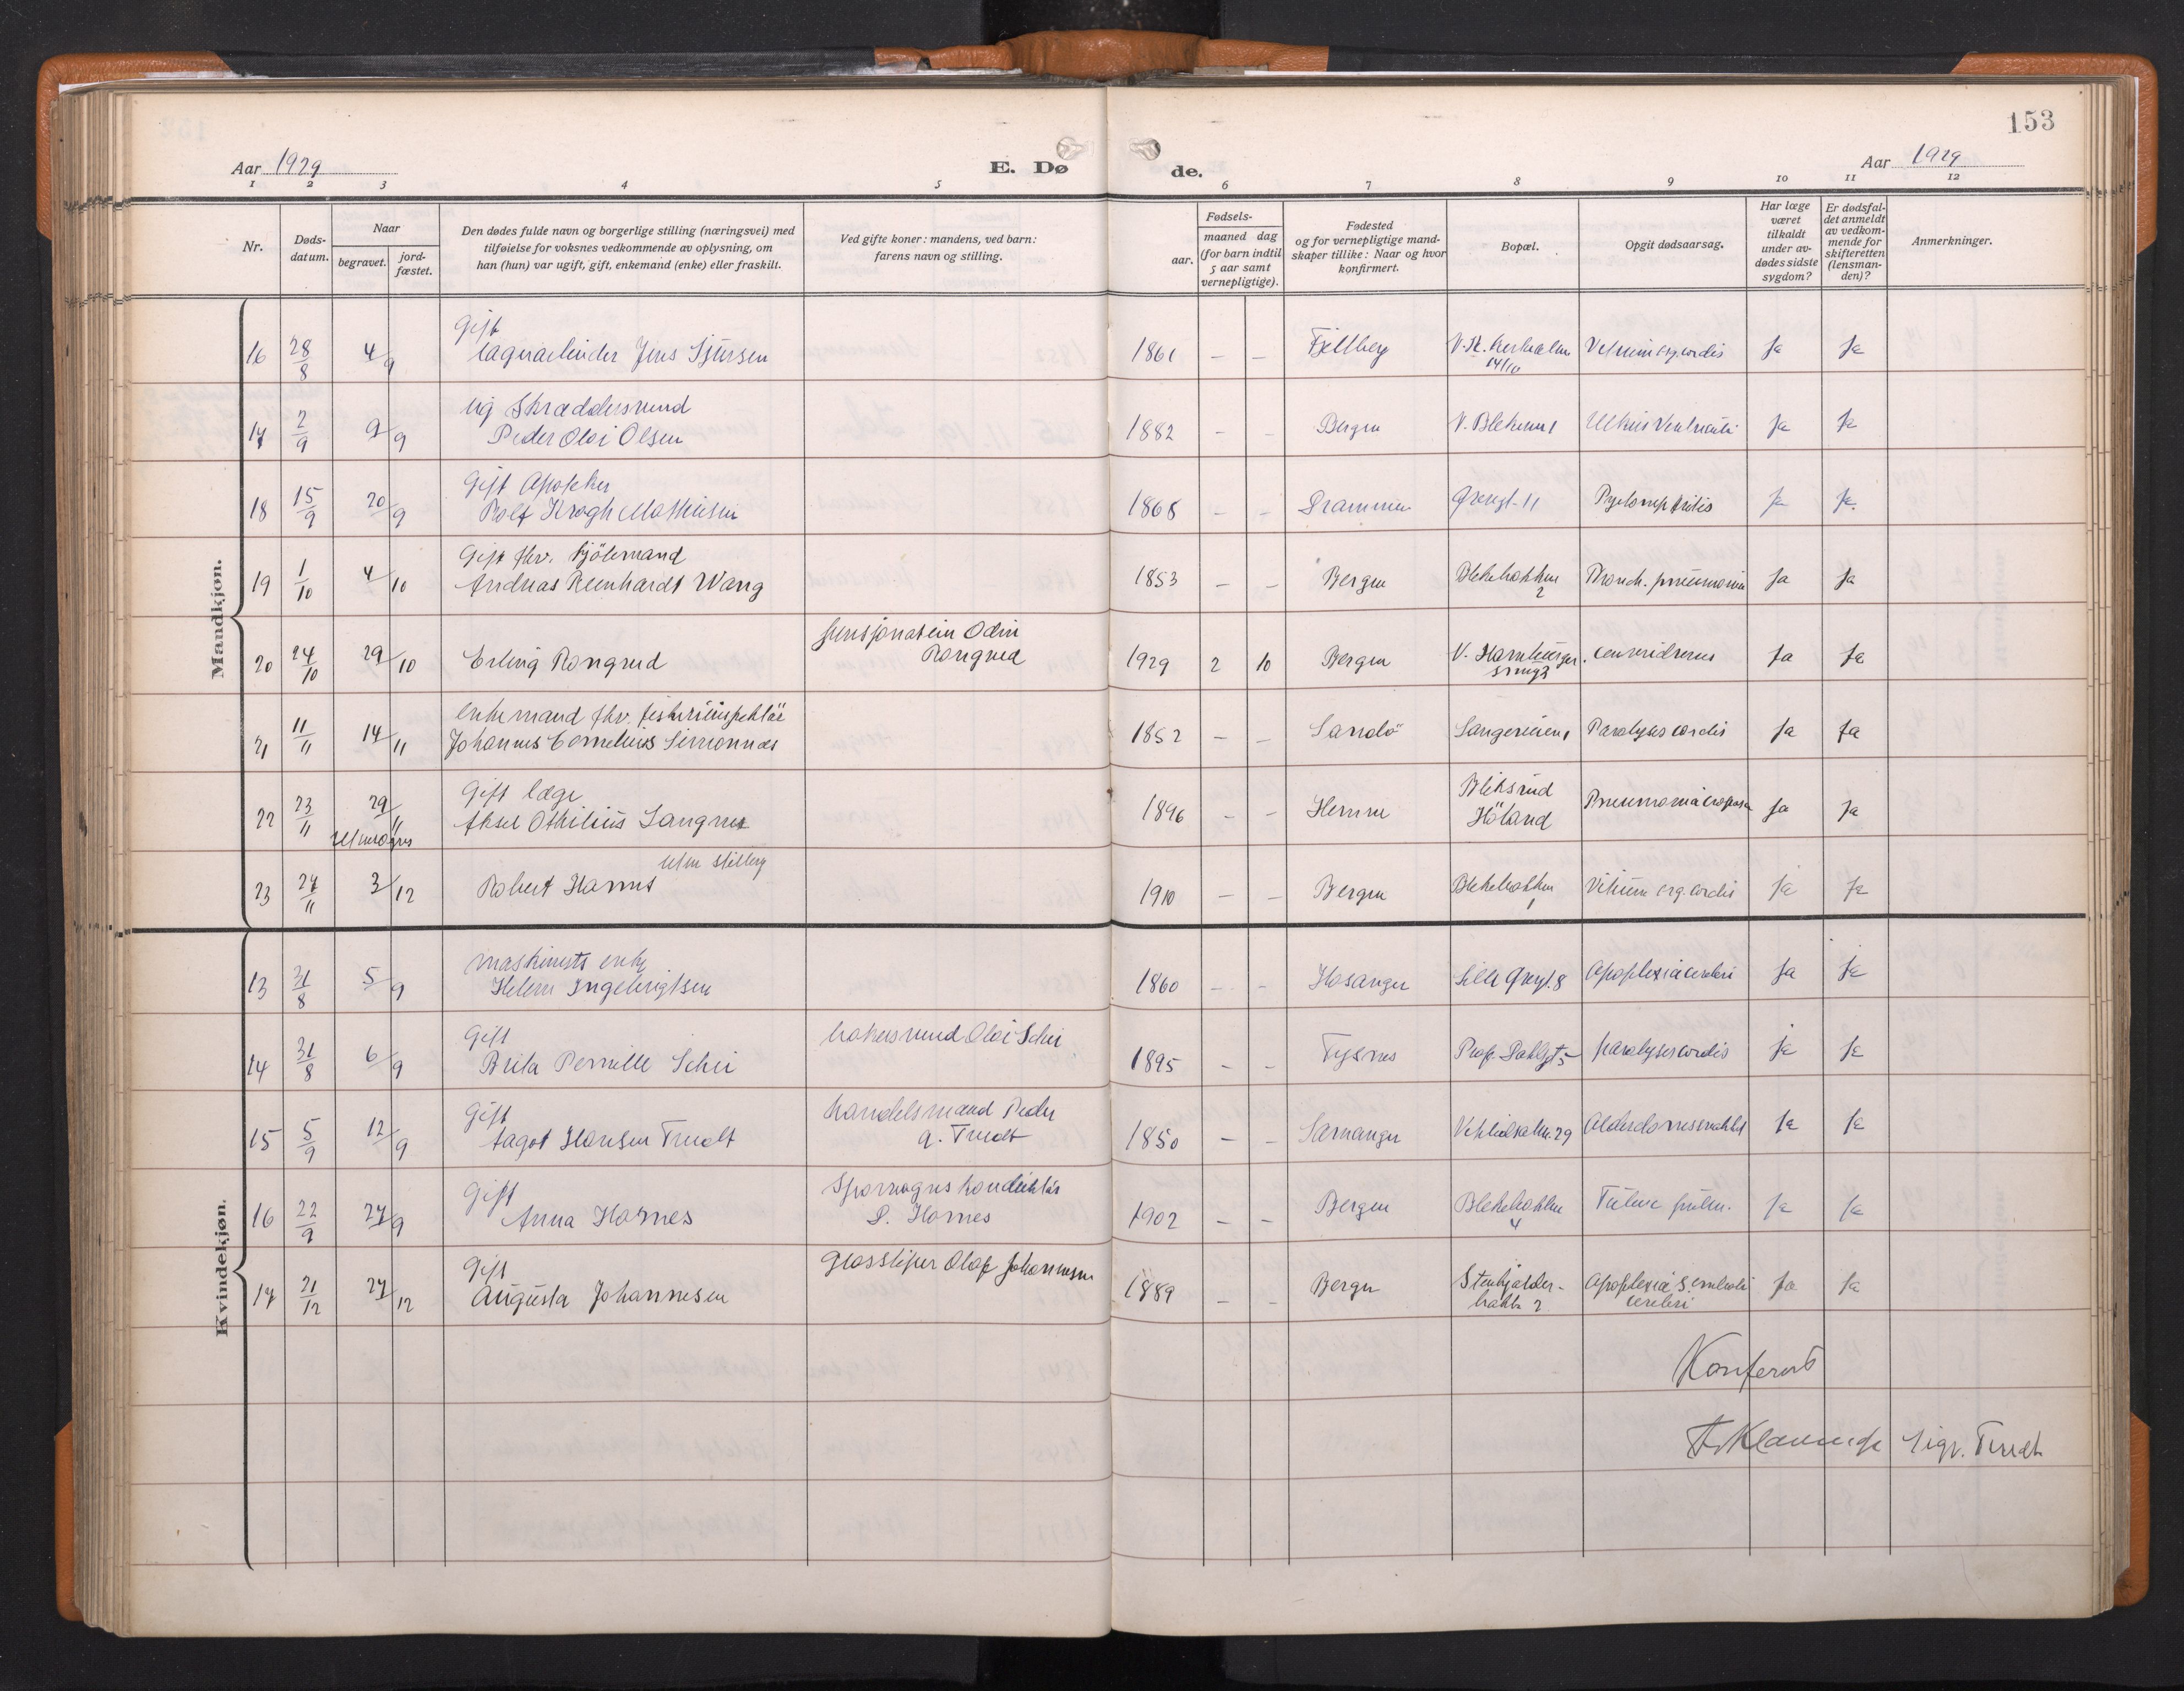 153
Aar 1929
E. Dø
de.
Aar 1929
1 2 3 4 5 6 7 8 9 10 11 12
Nr.
Døds-
datum.
Naar
begravet.
jord-
fæstet.
Den dødes fulde navn og borgerlige stilling (næringsvei) med
tilføielse for voksnes vedkommende av oplysning, om
han (hun) var ugift, gift, enkemand (enke) eller fraskilt.
Ved gifte koner: mandens, ved barn:
farens navn og stilling.
Fødsels-
aar.
maaned dag
(for barn indtil
5 aar samt
vernepligtige).
Fødested
og for vernepligtige mand-
skaper tillike: Naar og hvor
konfirmert.
Bopæl.
Opgit dødsaarsag.
Har læge
været
tilkaldt
under av-
dødes sidste
sygdom?
Er dødsfal-
det anmeldt
av vedkom-
mende for
skifteretten
(lensman-
den)?
Anmerkninger.
Mandkjøn.
Gift
16 28/8 4/9 Jens Sjursen 1861 – – Fjellberg cordis Ja Ja
ug Skræddersvend
17 2/9 9/9 Peder Olai Olsen 1882 – – Bergen Ja Ja
Gift Apoteker
18 15/9 20/9 Rolf Krogh Mathiesen 1868 – – Drammen 11 Pyelonephritis Ja Ja
Gift fhv. Sjömand
19 1/10 4/10 Andreas Reenhardt Wang 1853 – – Bergen Blekebakken 2 Bronch. pneumonia Ja Ja
Odin
20 24/10 29/10 Erling Rongved Rongved 1929 2 10 Bergen Ja Ja
enkemand fhv. fiskeriinspektör
21 11/11 14/11 Johannes Cornelius Simonnæs 1852 – – Sandö Paralysis cordis Ja Ja
Gift læge
22 23/11 29/11 Aksel Othilius 1896 – – Hemne Høland Pneumonia crouposa Ja Ja
uten stilling
23 27/11 3/12 Robert 1910 – – Bergen Blekebakken 1 Vitium org. cordis Ja Ja
Kvindekjøn.
maskinists enke
13 31/8 5/9 Helene Ingebrigtsen 1860 – – Hosanger Lille 8 Apoplexia cerebri Ja Ja
Gift
14 31/8 6/9 Brita Pernille Schei bakersvend Olai Schei 1895 – – Tysnes Prof. Dahlsgt 5 paralysis cordis Ja Ja
Gift handelsmand Peder
15 5/9 12/9 Hansen Tvedt A. Tvedt 1850 – – Samanger 29 Ja Ja
Gift Sporvogns konduktör
16 22/9 27/9 Anna Hornes S. Hornes 1902 – – Bergen Blekebakken 4 Tuberc pulm. Ja Ja
Gift Glassliper Olaf Johannesen
17 21/12 27/12 Augusta Johannesen 1889 – – Bergen Stenkjelder-
bakk 2 Apoplexia
cerebri Ja Ja
Konferert
Sigv. Tvedt